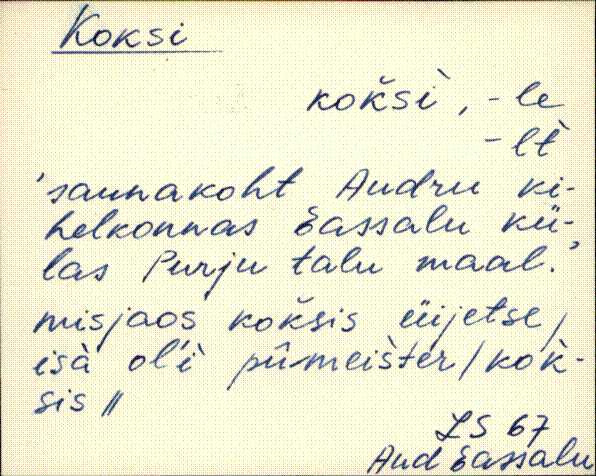 Koksi
kok̆sì̬, -le
-lt̀
'saunakoht Audru ki-
helkonnas Eassalu kü-
las Purju talu maal.'
misjaos kok̆sis üijetse/
isà ol'ì pûmeìster/kok̀-
sis //
LS 67
Aud Eassalu